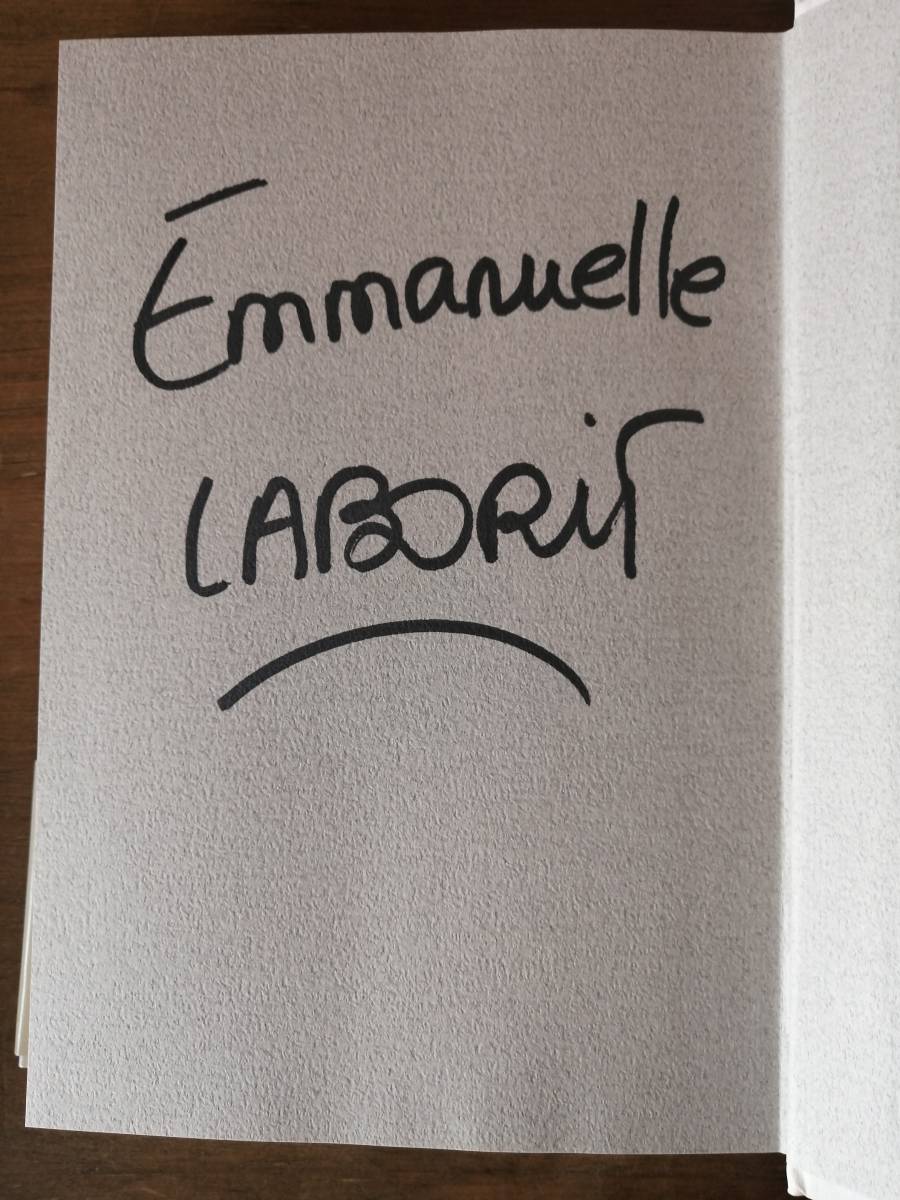 Emmanuelle
LABORiT